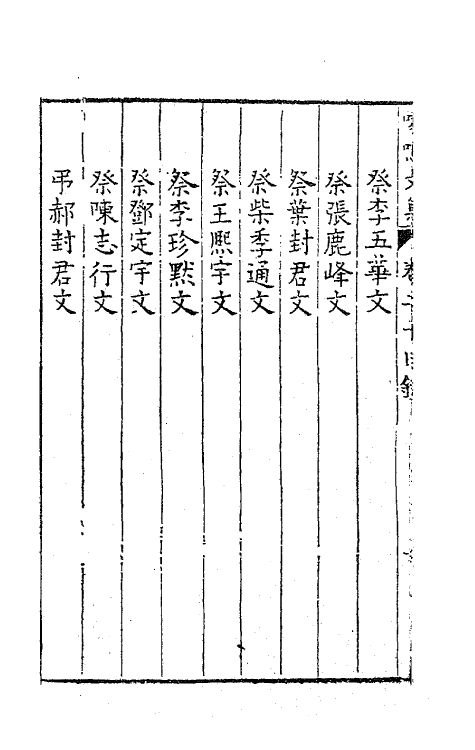 祭李五華文
祭張鹿峰文
祭葉封君文
祭柴季通文
祭王熈宇文
祭李珍默文
祭鄧定宇文
祭陳志行文
弔郝封君文